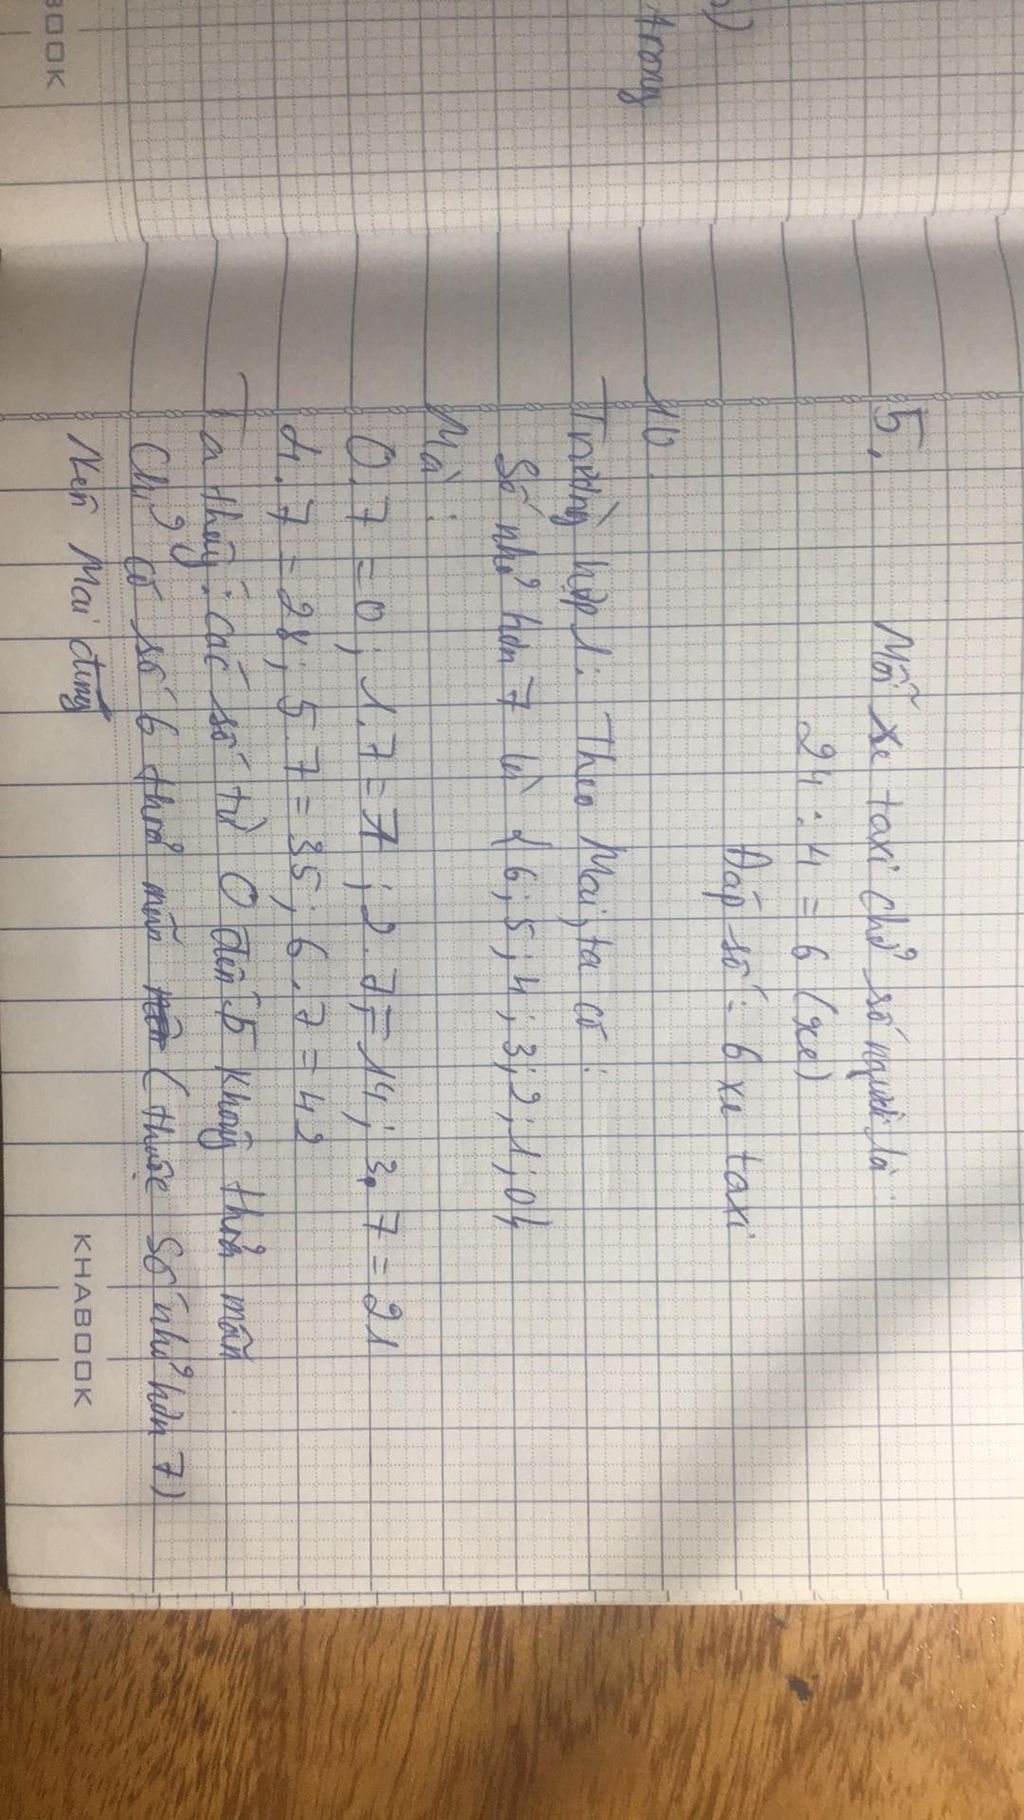 BOOK
trong
5,
Mỗi xe taxi chở số người là
24 : 4 = 6 (xe)
Đáp số: 6 xe taxi
10.
Trường hợp 1: Theo Mai, ta có:
Số nhỏ hơn 7 là {6; 5; 4; 3; 2; 1; 0}
Mà:
0.7 = 0; 1.7 = 7; 2.7 = 14; 3.7 = 21
4.7 = 28; 5.7 = 35; 6.7 = 42
Ta thấy: các số từ 0 đến 5 không thoả mãn
Chỉ có số 6 thoả mãn (thuộc số nhỏ hơn 7)
Nên Mai đúng
KHABOOK